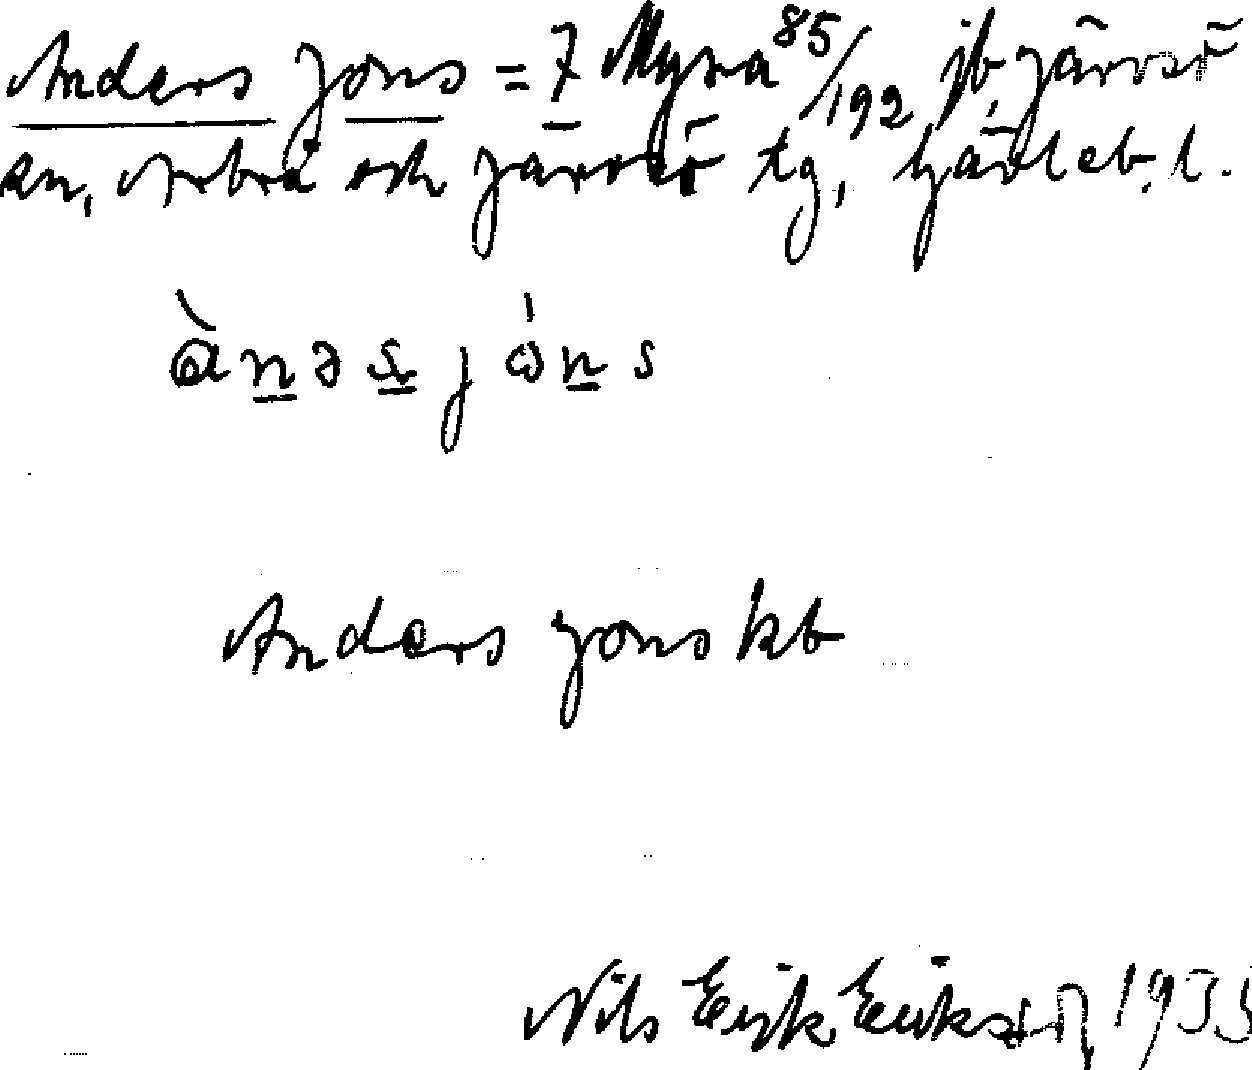 Anders Jons = 7 Myra 85/192 jb, Järvsö
sn, Arbrå och Järvsö tg, Gävleb. l.
ànəs jóns
Anders Jons kb
Nils Erik Eriksson 1935